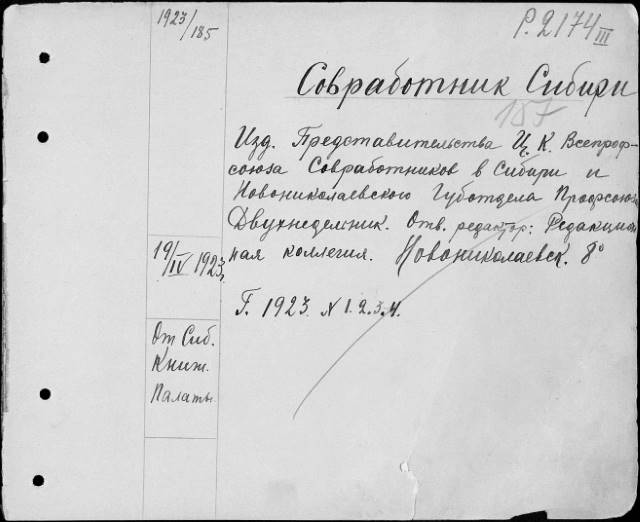 1923/185
P. 2174 III
Совработник Сибири
157
Изд. Представительства Ц. К. Всепроф-
союза Совработников в Сибири и
Новониколаевского Губотдела Профсоюза
Двухнедельник. Отв. редактор: Редакцион
ная коллегия. Новониколаевск. 8°
19/IV 1923.
Г. 1923. N 1. 2. 3. 4.
От Сиб.
Книж.
Палаты